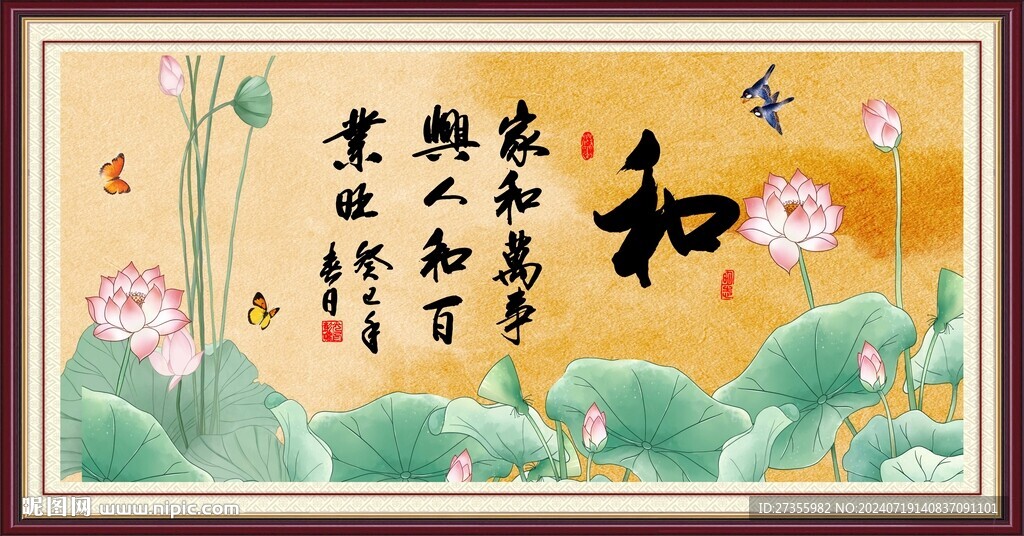 和
家和萬事
興人和百
業旺
癸巳年
春日
昵图网 www.nipic.com
ID:27355982 NO:20240719140837091101